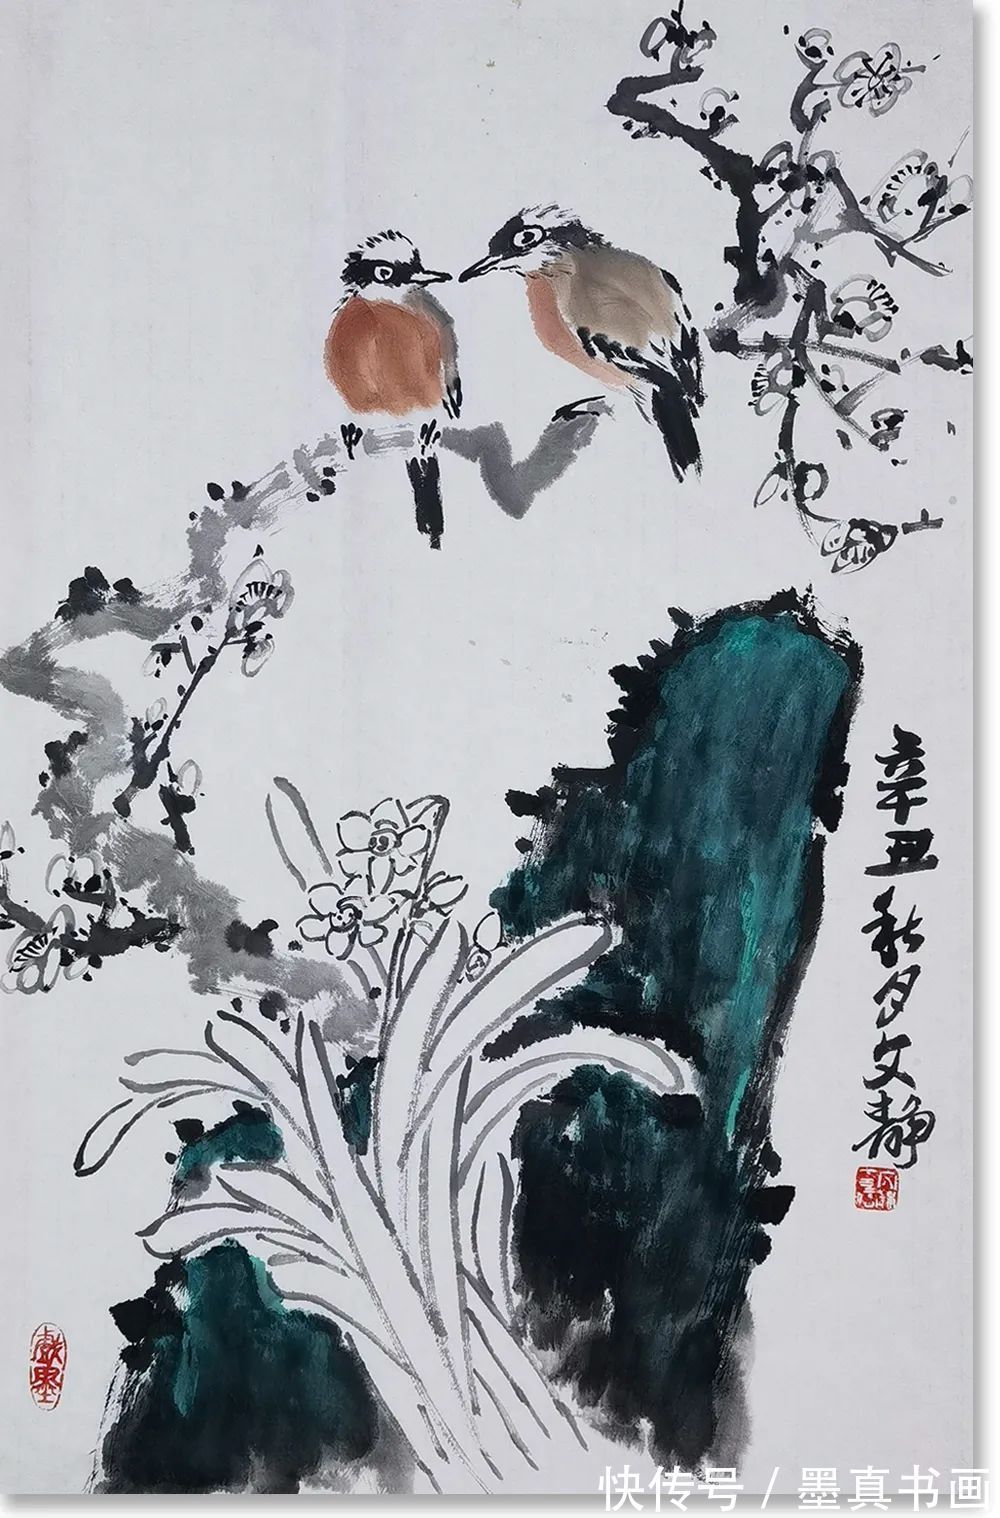 辛丑秋月文静
戲墨
快传号/墨真书画